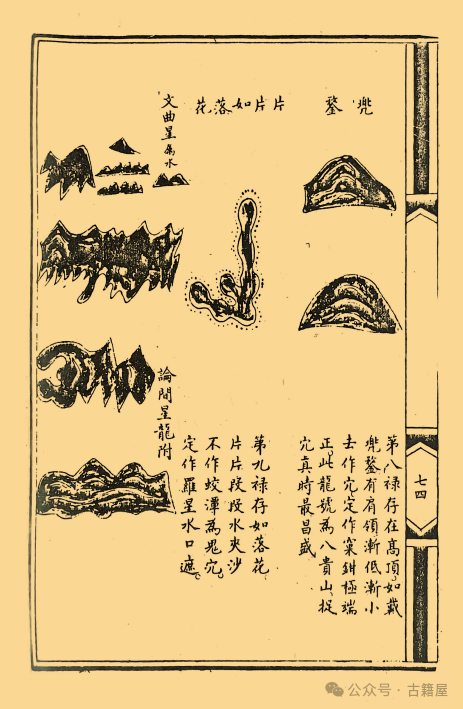 七四
兜鍪
片片如落花
第八禄存在高頂。如戴
兜鍪有肩領漸低漸小
去作穴。定作窠鉗極端
正。此龍號為八貴山。捉
穴真時最昌盛
第九禄存如落花
片片段段水夾沙
不作蛟潭為鬼穴。
定作羅星水口遮。
文曲星屬水
論間星龍附
公众号 · 古籍屋